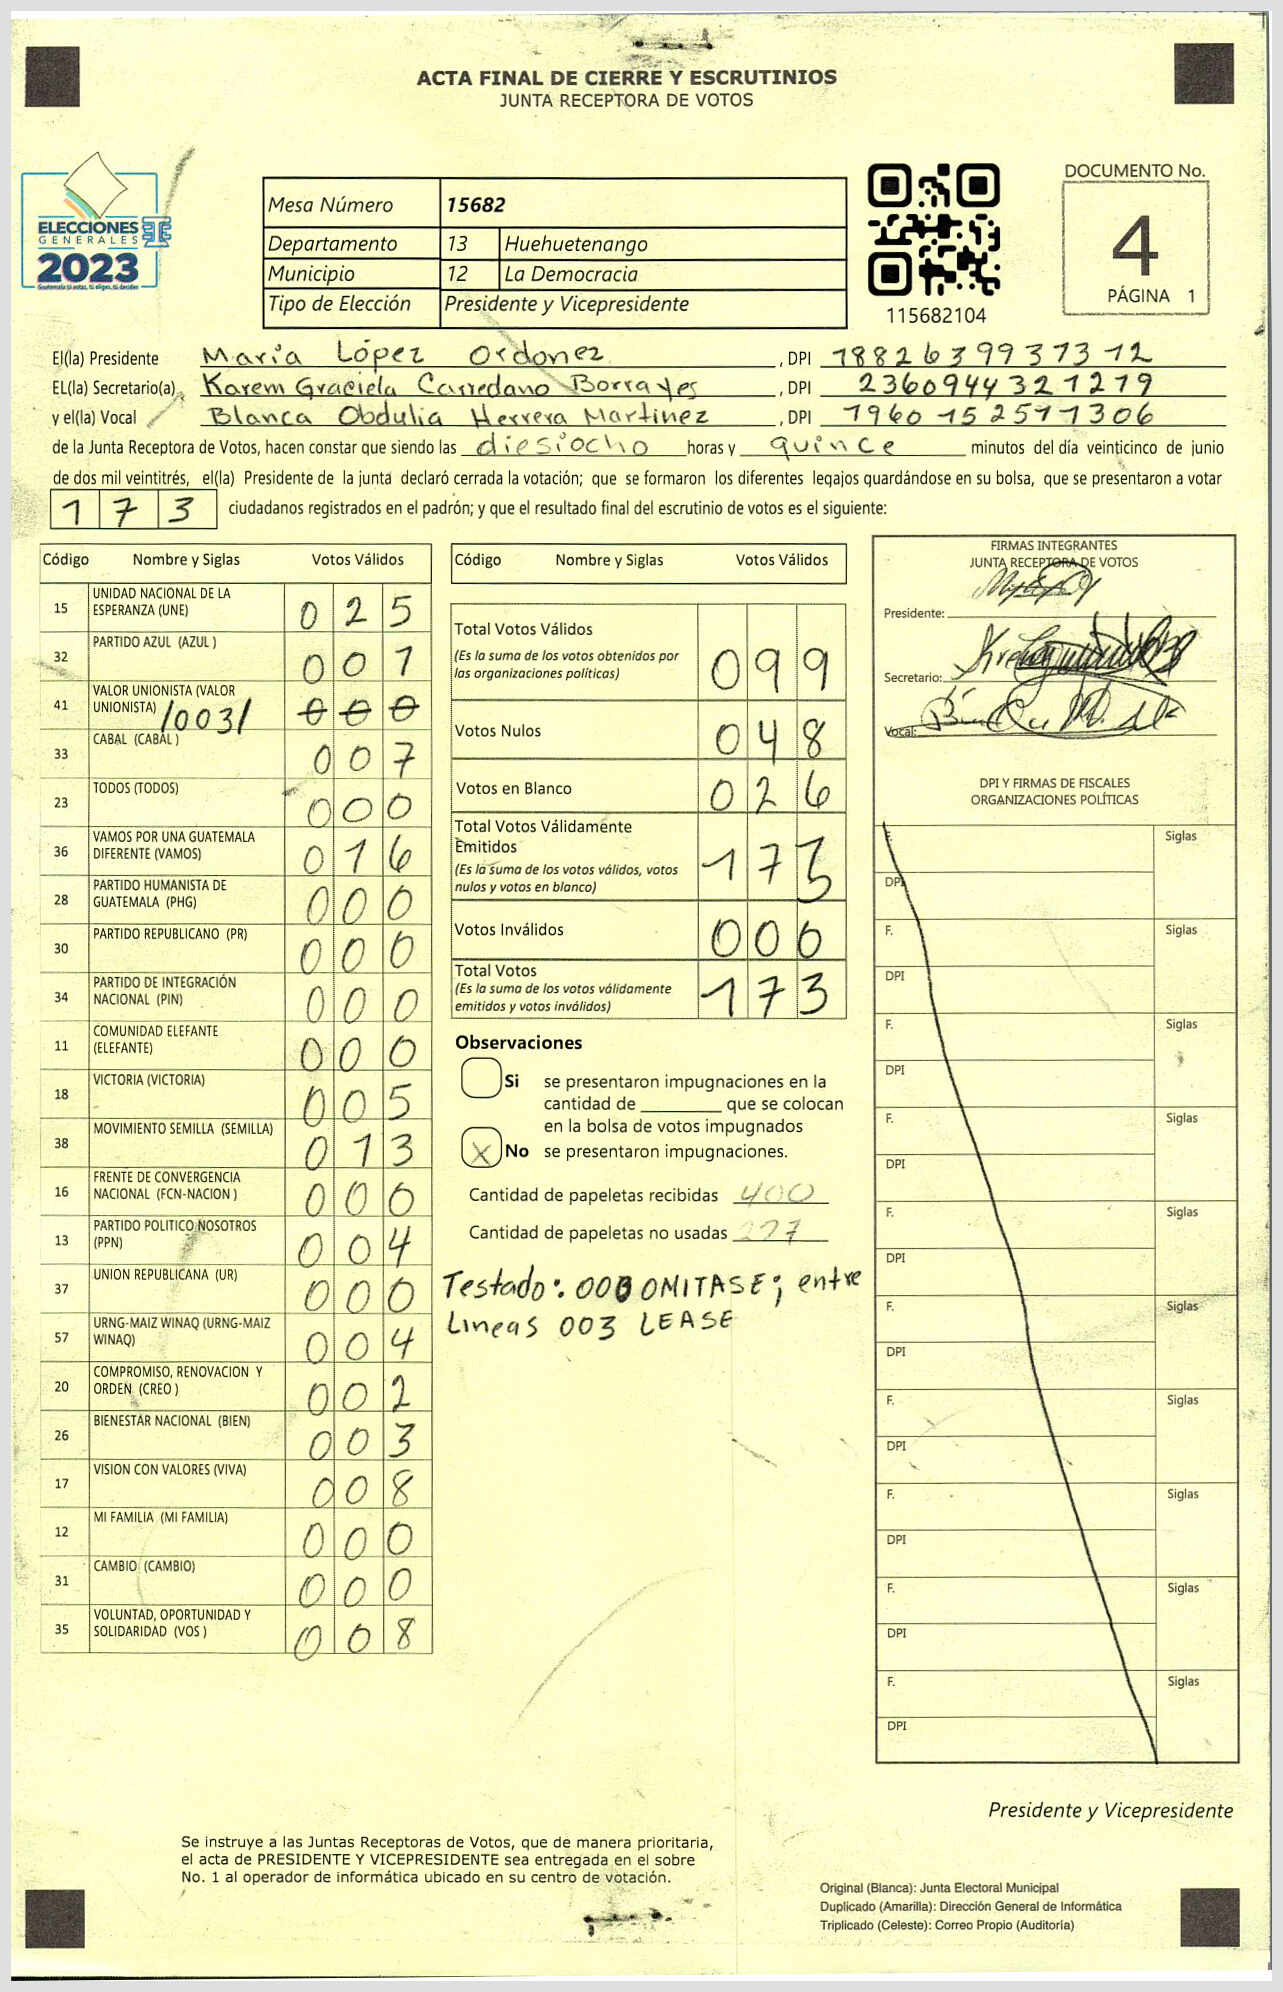 ACTA FINAL DE CIERRE Y ESCRUTINIOS
JUNTA RECEPTORA DE VOTOS
ELECCIONES
GENERALES
2023
Guatemala tú votas, tú eliges, tú decides
Mesa Número 15682
Departamento 13 Huehuetenango
Municipio 12 La Democracia
Tipo de Elección Presidente y Vicepresidente
115682104
DOCUMENTO No.
4
PÁGINA 1
El(la) Presidente María López Ordonez, DPI 1882639937312
EL(la) Secretario(a), Karem Graciela Carredano Borrayes, DPI 2360944321219
y el(la) Vocal Blanca Obdulia Herrera Martinez, DPI 1960152511306
de la Junta Receptora de Votos, hacen constar que siendo las diesiocho horas y quince minutos del día veinticinco de junio
de dos mil veintitrés, el(la) Presidente de la junta declaró cerrada la votación; que se formaron los diferentes legajos quardándose en su bolsa, que se presentaron a votar
173 ciudadanos registrados en el padrón; y que el resultado final del escrutinio de votos es el siguiente:
Código Nombre y Siglas Votos Válidos
15 UNIDAD NACIONAL DE LA ESPERANZA (UNE) 025
32 PARTIDO AZUL (AZUL ) 001
41 VALOR UNIONISTA (VALOR UNIONISTA) /003/ 000
33 CABAL (CABAL ) 007
23 TODOS (TODOS) 000
36 VAMOS POR UNA GUATEMALA DIFERENTE (VAMOS) 016
28 PARTIDO HUMANISTA DE GUATEMALA (PHG) 000
30 PARTIDO REPUBLICANO (PR) 000
34 PARTIDO DE INTEGRACIÓN NACIONAL (PIN) 000
11 COMUNIDAD ELEFANTE (ELEFANTE) 000
18 VICTORIA (VICTORIA) 005
38 MOVIMIENTO SEMILLA (SEMILLA) 013
16 FRENTE DE CONVERGENCIA NACIONAL (FCN-NACION ) 000
13 PARTIDO POLITICO NOSOTROS (PPN) 004
37 UNION REPUBLICANA (UR) 000
57 URNG-MAIZ WINAQ (URNG-MAIZ WINAQ) 004
20 COMPROMISO, RENOVACION Y ORDEN (CREO ) 002
26 BIENESTAR NACIONAL (BIEN) 003
17 VISION CON VALORES (VIVA) 008
12 MI FAMILIA (MI FAMILIA) 000
31 CAMBIO (CAMBIO) 000
35 VOLUNTAD, OPORTUNIDAD Y SOLIDARIDAD (VOS ) 008
Código Nombre y Siglas Votos Válidos
Total Votos Válidos 099
(Es la suma de los votos obtenidos por
las organizaciones políticas)
Votos Nulos 048
Votos en Blanco 026
Total Votos Válidamente Emitidos 173
(Es la suma de los votos válidos, votos
nulos y votos en blanco)
Votos Inválidos 000
Total Votos 173
(Es la suma de los votos válidamente
emitidos y votos inválidos)
Observaciones
Si se presentaron impugnaciones en la
cantidad de ________ que se colocan
en la bolsa de votos impugnados
X No se presentaron impugnaciones.
Cantidad de papeletas recibidas 400
Cantidad de papeletas no usadas 227
Testado: 000 OMITASE; entre
Lineas 003 LEASE
FIRMAS INTEGRANTES
JUNTA RECEPTORA DE VOTOS
Presidente:
Secretario:
Vocal:
DPI Y FIRMAS DE FISCALES
ORGANIZACIONES POLÍTICAS
F. Siglas
DPI
F. Siglas
DPI
F. Siglas
DPI
F. Siglas
DPI
F. Siglas
DPI
F. Siglas
DPI
F. Siglas
DPI
F. Siglas
DPI
F. Siglas
DPI
F. Siglas
DPI
Presidente y Vicepresidente
Se instruye a las Juntas Receptoras de Votos, que de manera prioritaria,
el acta de PRESIDENTE Y VICEPRESIDENTE sea entregada en el sobre
No. 1 al operador de informática ubicado en su centro de votación.
Original (Blanca): Junta Electoral Municipal
Duplicado (Amarilla): Dirección General de Informática
Triplicado (Celeste): Correo Propio (Auditoría)